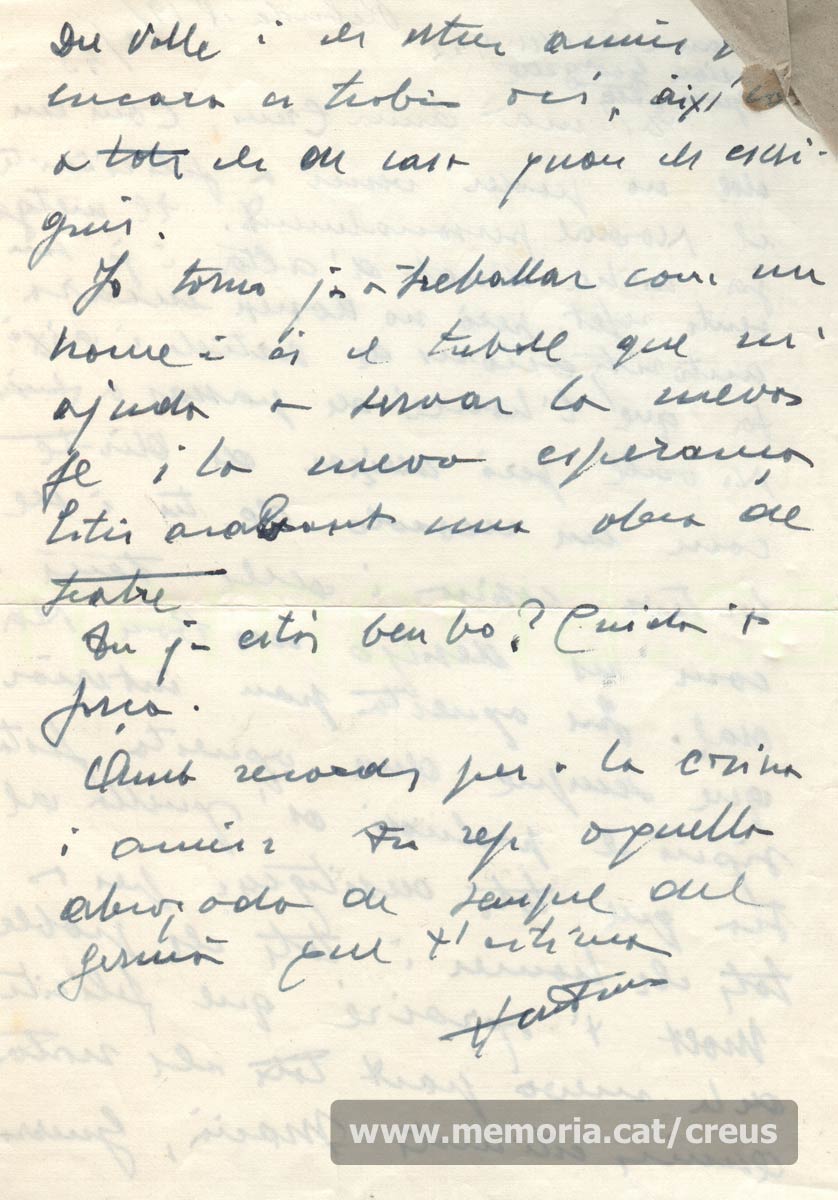 Du Valle i els altres amics
encara es trobin ací, així com
a tots els de casa quan els escri-
guis.
Jo torno ja a treballar com un
home i és el treball que m'
ajuda a servar la meva
fe i la meva esperança
Estic acabant una obra de
teatre
Tu ja estàs ben bo? Cuida't
força.
Amb records per a la cosina
i amics tu rep aquella
abraçada de sempre del
germà que t'estima
www.memoria.cat/creus